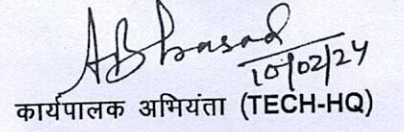 ABPrasad
10/02/24
कार्यपालक अभियंता (TECH-HQ)